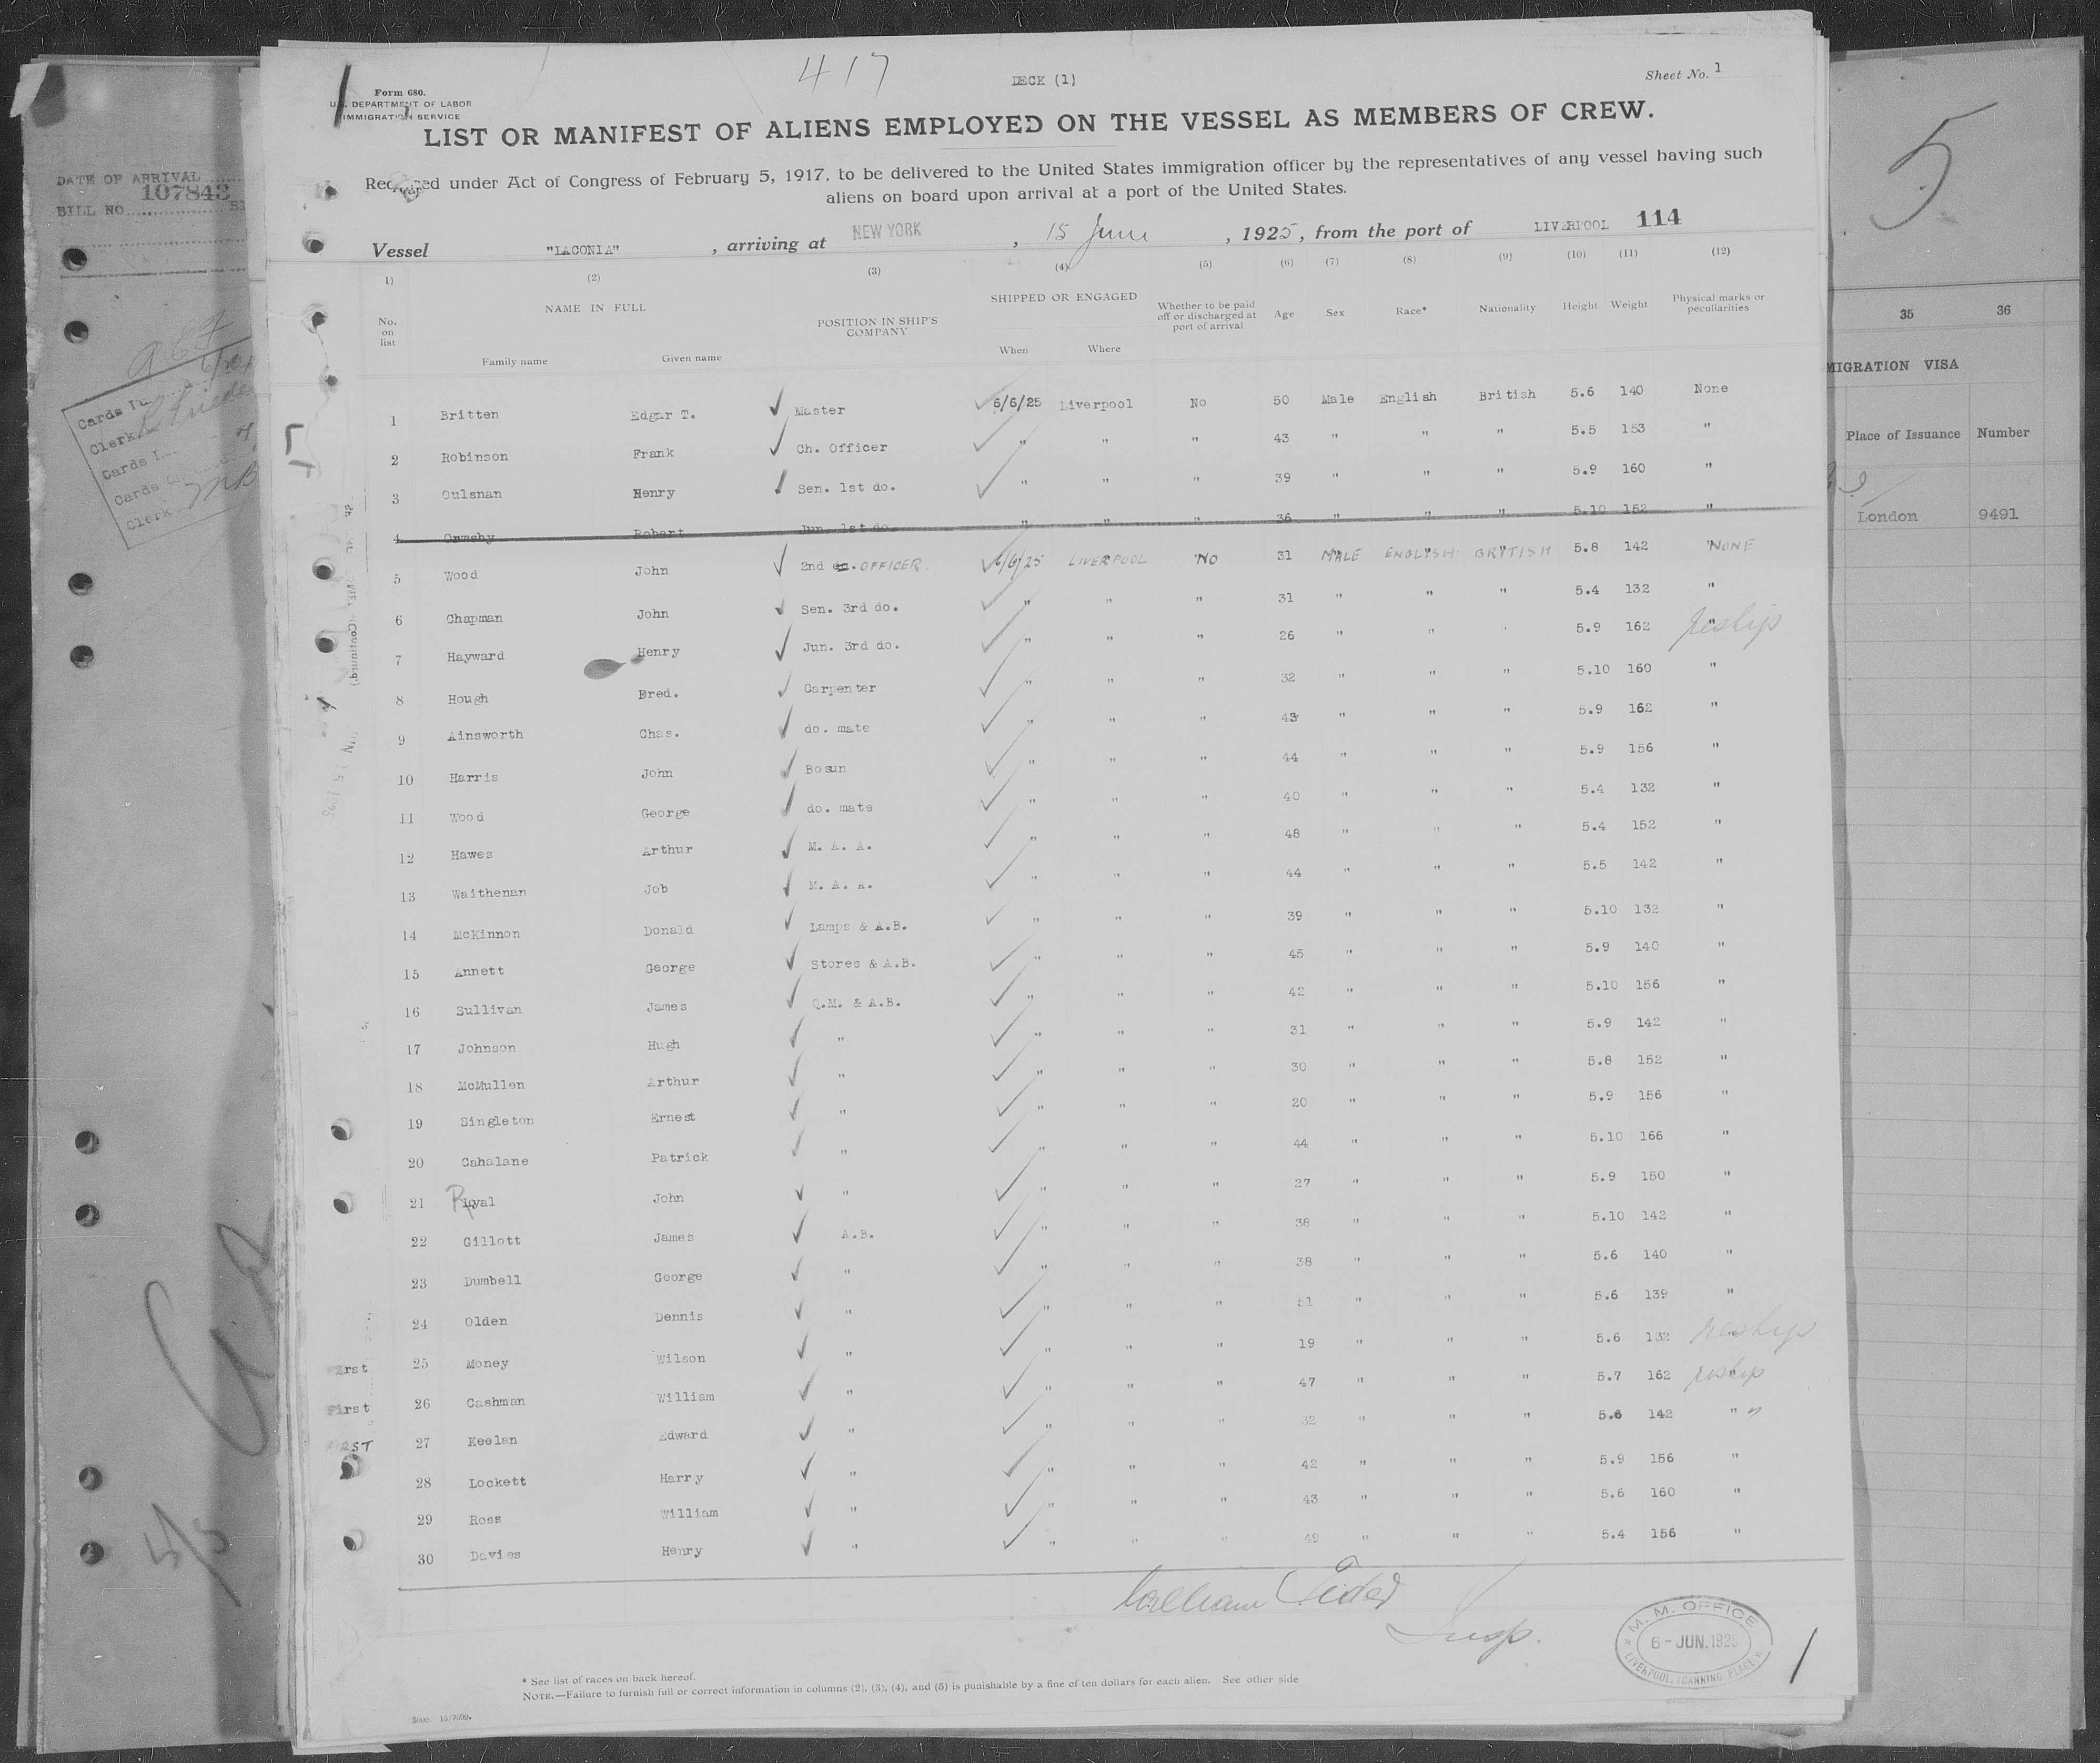 417
DECK (1)
Sheet No. 1
Form 680.
U.S. DEPARTMENT OF LABOR
IMMIGRATION SERVICE
LIST OR MANIFEST OF ALIENS EMPLOYED ON THE VESSEL AS MEMBERS OF CREW.
Required under Act of Congress of February 5, 1917, to be delivered to the United States immigration officer by the representatives of any vessel having such
aliens on board upon arrival at a port of the United States.
Vessel "LACONIA" , arriving at NEW YORK , 15 June , 1925, from the port of LIVERPOOL 114
1) (2) (3) (4) (5) (6) (7) (8) (9) (10) (11) (12)
No. on list NAME IN FULL Family name Given name POSITION IN SHIP'S COMPANY SHIPPED OR ENGAGED When Where Whether to be paid off or discharged at port of arrival Age Sex Race* Nationality Height Weight Physical marks or peculiarities
1 Britten Edgar T. ✓ Master ✓ 6/6/25 Liverpool No 50 Male English British 5.6 140 None
2 Robinson Frank ✓ Ch. Officer ✓ " " " 43 " " " 5.5 153 "
3 Oulsnan Henry ✓ Sen. 1st do. ✓ " " " 39 " " " 5.9 160 "
4 Ormsby Robert Jun. 1st do. " " " 36 " " " 5.10 152 "
5 Wood John ✓ 2nd do. OFFICER. ✓ 6/6/25 LIVERPOOL NO 31 MALE ENGLISH BRITISH 5.8 142 NONE
6 Chapman John ✓ Sen. 3rd do. ✓ " " " 31 " " " 5.4 132 "
7 Hayward Henry ✓ Jun. 3rd do. ✓ " " " 26 " " " 5.9 162 " reship
8 Hough Fred. ✓ Carpenter ✓ " " " 32 " " " 5.10 160 "
9 Ainsworth Chas. ✓ do. mate ✓ " " " 43 " " " 5.9 162 "
10 Harris John ✓ Bosun ✓ " " " 44 " " " 5.9 156 "
11 Wood George ✓ do. mate ✓ " " " 40 " " " 5.4 132 "
12 Hawes Arthur ✓ M. A. A. ✓ " " " 48 " " " 5.4 152 "
13 Waithenan Job ✓ M. A. A. ✓ " " " 44 " " " 5.5 142 "
14 McKinnon Donald ✓ Lamps & A.B. ✓ " " " 39 " " " 5.10 132 "
15 Annett George ✓ Stores & A.B. ✓ " " " 45 " " " 5.9 140 "
16 Sullivan James ✓ Q.M. & A.B. ✓ " " " 42 " " " 5.10 156 "
17 Johnson Hugh ✓ " ✓ " " " 31 " " " 5.9 142 "
18 McMullen Arthur ✓ " ✓ " " " 30 " " " 5.8 152 "
19 Singleton Ernest ✓ " ✓ " " " 20 " " " 5.9 156 "
20 Cahalane Patrick ✓ " ✓ " " " 44 " " " 5.10 166 "
21 Royal John ✓ " ✓ " " " 27 " " " 5.9 150 "
22 Gillott James ✓ A.B. ✓ " " " 38 " " " 5.10 142 "
23 Dumbell George ✓ " ✓ " " " 38 " " " 5.6 140 "
24 Olden Dennis ✓ " ✓ " " " 51 " " " 5.6 139 "
25 Money Wilson ✓ " ✓ " " " 19 " " " 5.6 132 " reship
26 Cashman William ✓ " ✓ " " " 47 " " " 5.7 162 " reship
27 Keelan Edward ✓ " ✓ " " " 32 " " " 5.6 142 " "
28 Lockett Harry ✓ " ✓ " " " 42 " " " 5.9 156 "
29 Ross William ✓ " ✓ " " " 43 " " " 5.6 160 "
30 Davies Henry ✓ " ✓ " " " 49 " " " 5.4 156 "
First
William
Insp.
M. M. OFFICE
6-JUN.1925
LIVERPOOL, (CANNING PLACE.)
* See list of races on back hereof.
NOTE.—Failure to furnish full or correct information in columns (2), (3), (4), and (5) is punishable by a fine of ten dollars for each alien. See other side
DATE OF ARRIVAL
107843
BILL NO
Cards I
Clerk
Cards I
Cards
Clerk
5
35 36
MIGRATION VISA
Place of Issuance Number
London 9491